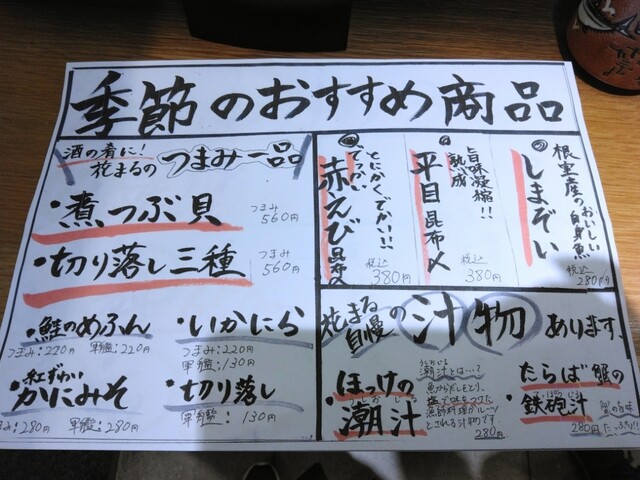 季節のおすすめ商品
酒の肴に!
花まるの つまみ一品
・煮つぶ貝
つまみ
560円
・切り落し三種
つまみ
560円
・鮭のめふん
つまみ:220円 軍艦:220円
・いかにら
つまみ:220円
軍艦:130円
紅ずわい
かにみそ
つまみ:280円 軍艦:280円
・切り落し
軍艦:130円
とにかくでかい!!
でっかい赤えび昆布〆
税込
380円
旨味凝縮!!
熟成
平目昆布〆
税込
380円
根室産のおいしい白身魚
しまぞい
税込
280円
花まる自慢の汁物あります。
・ほっけの
潮汁
うしおじる
潮汁とは…?
魚からだしをとり、
塩で味をつけた
漁師料理がルーツ
とされる汁物です
280円
・たらば蟹の
鉄砲汁
280円
蟹の旨味
たっぷり!!